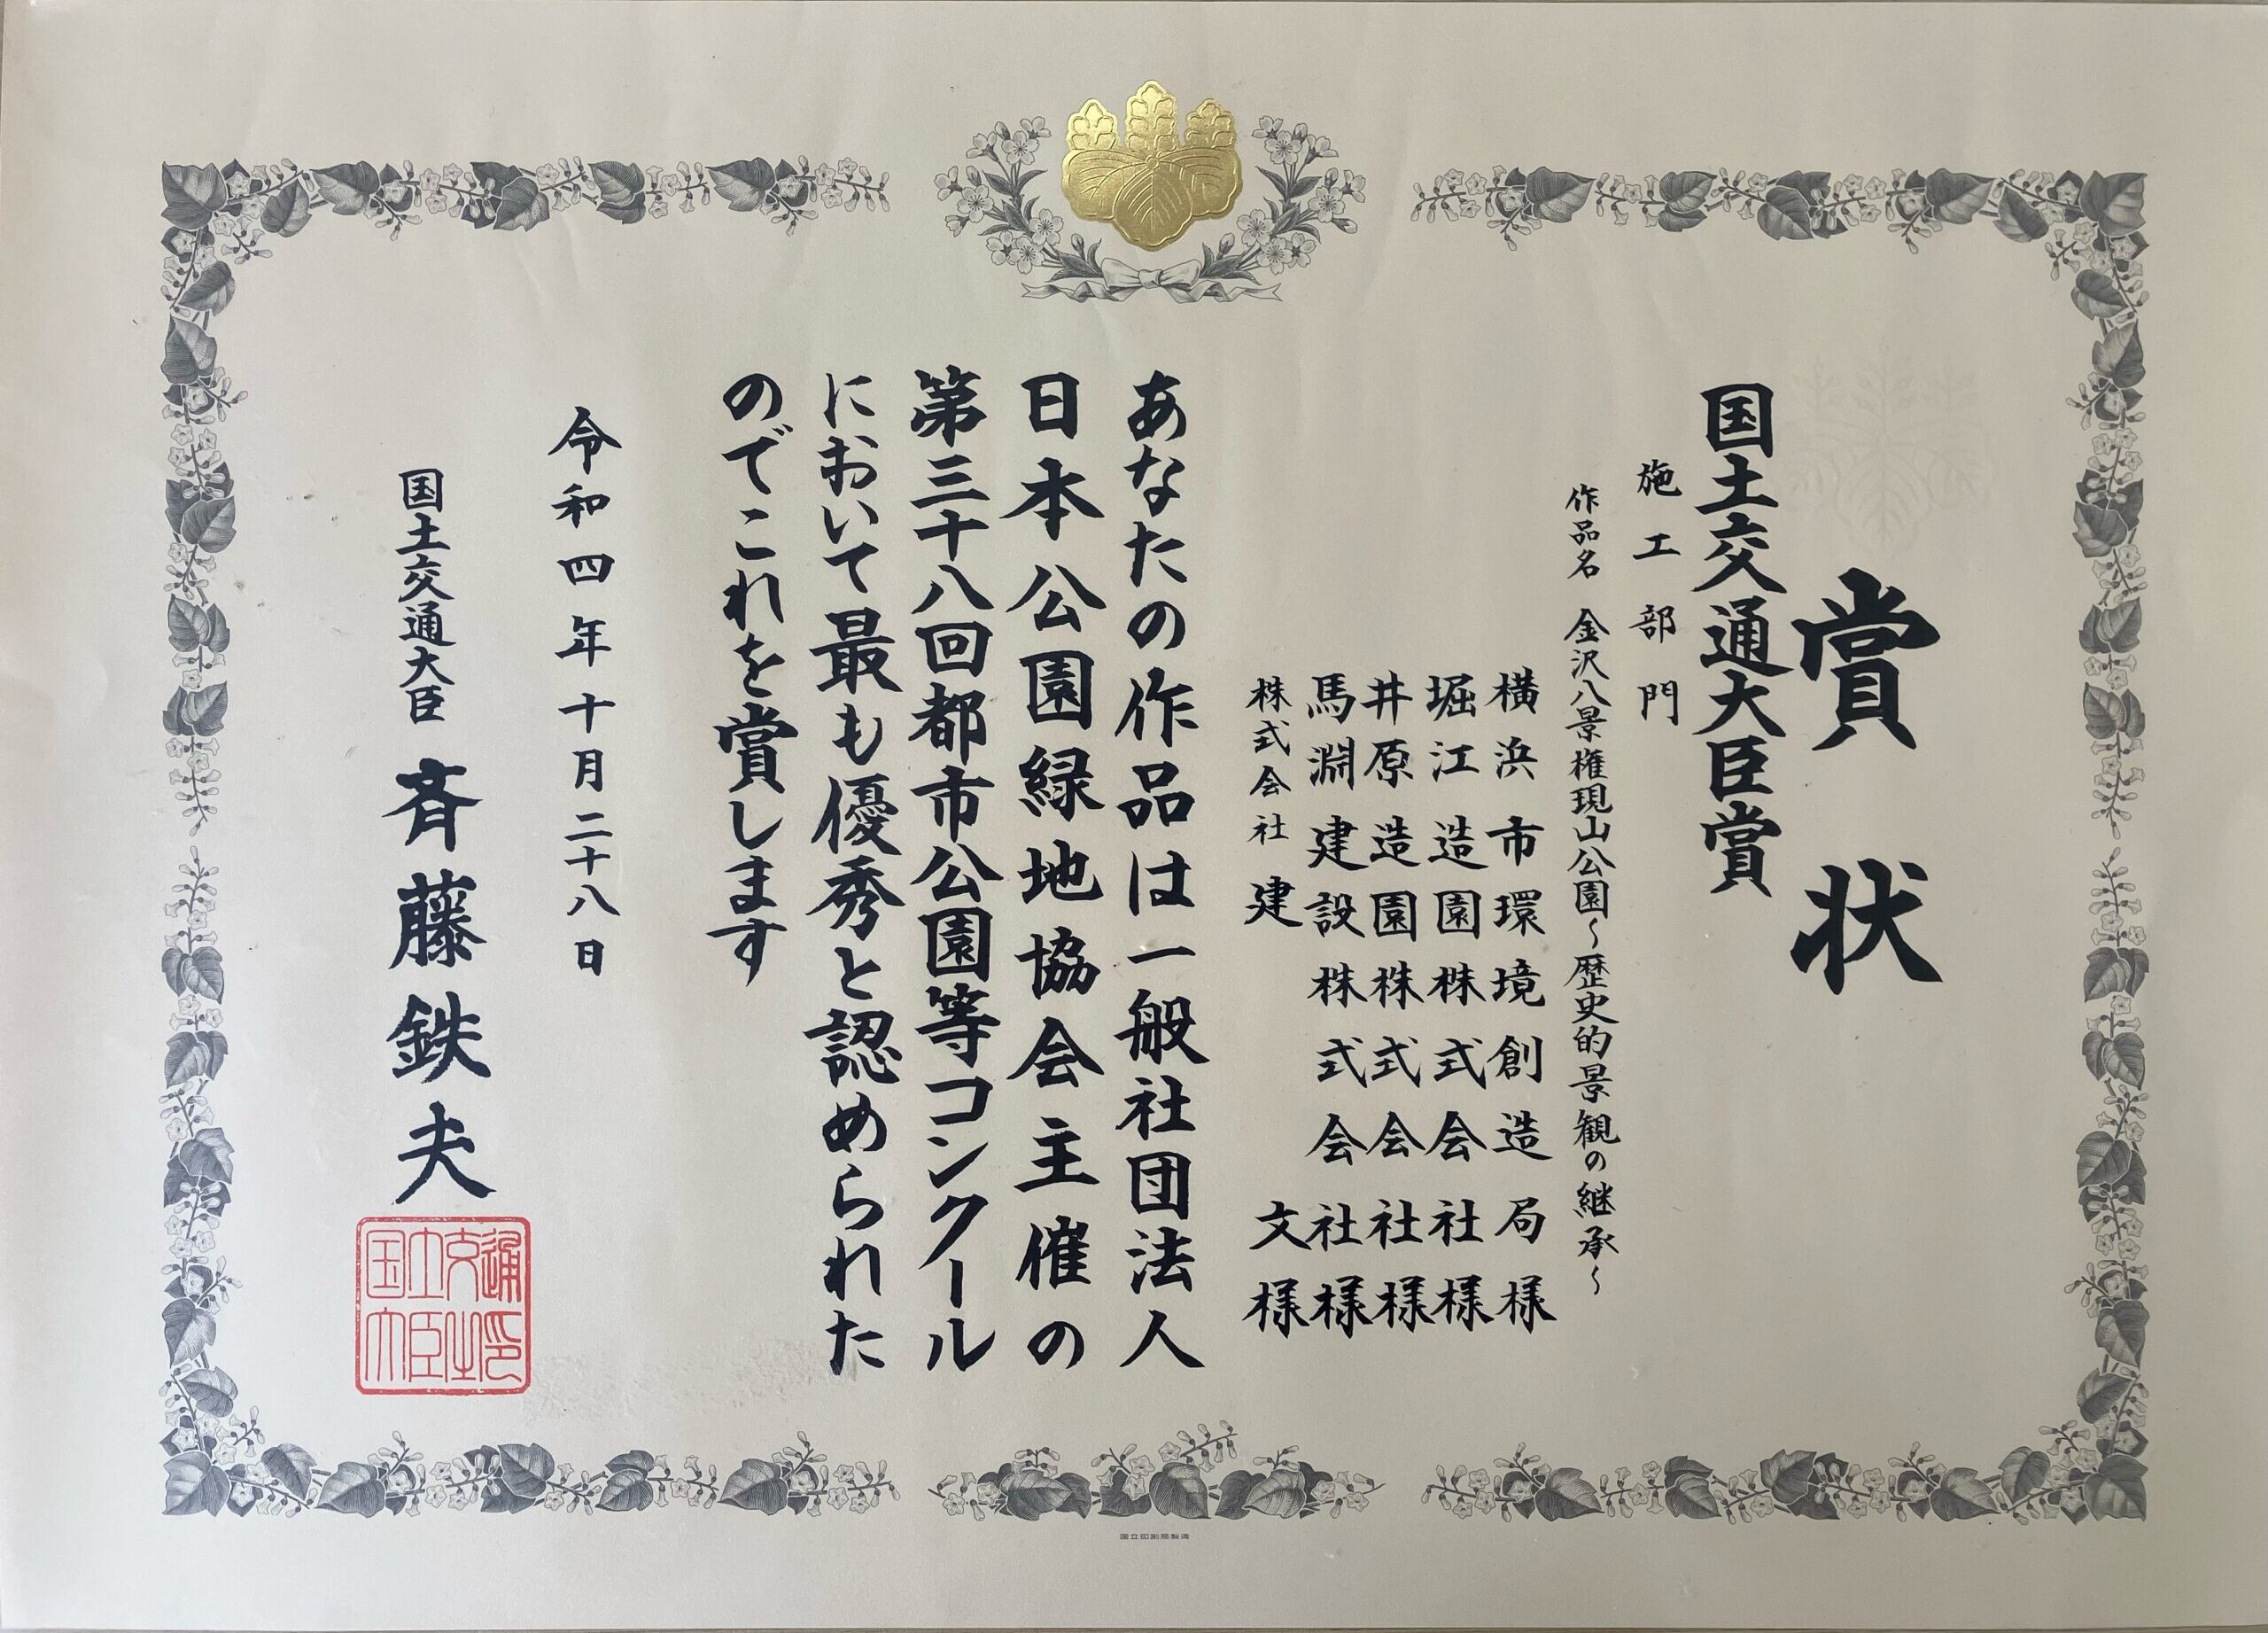 賞状
国土交通大臣賞
施工部門
作品名 金沢八景権現山公園~歴史的景観の継承~
横浜市環境創造局様
堀江造園株式会社様
井原造園株式会社様
馬淵建設株式会社様
株式会社建文様
あなたの作品は一般社団法人
日本公園緑地協会主催の
第三十八回都市公園等コンクール
において最も優秀と認められた
のでこれを賞します
令和四年十月二十八日
国土交通大臣 斉藤鉄夫
国土交通大臣之印
国立印刷局製造